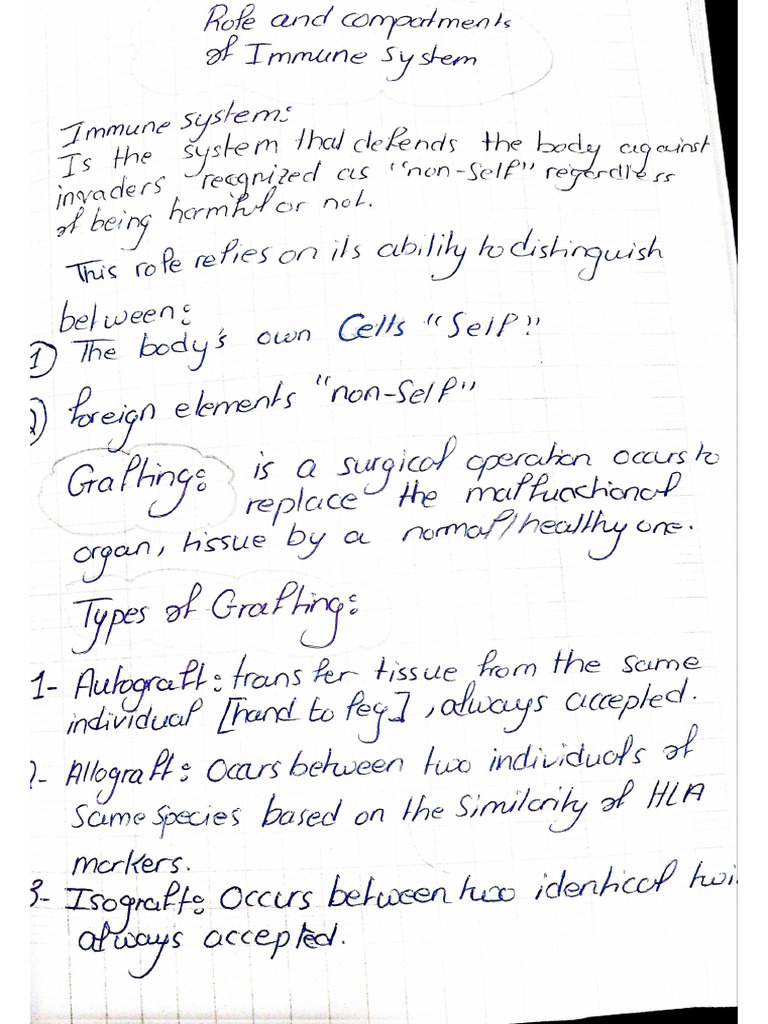 Role and compartments
of Immune system
Immune system:
Is the system that defends the body against
invaders recognized as "non-self" regardless
of being harmful or not.
This role relies on its ability to distinguish
between:
1) The body's own Cells "Self".
2) foreign elements "non-Self"
Grafting: is a surgical operation occurs to
replace the malfunctional
organ, tissue by a normal/healthy one.
Types of Grafting:
1- Autograft: transfer tissue from the same
individual [hand to leg], always accepted.
2- Allograft: Occurs between two individuals of
same species based on the Similarity of HLA
markers.
3- Isograft: Occurs between two identical twi
always accepted.